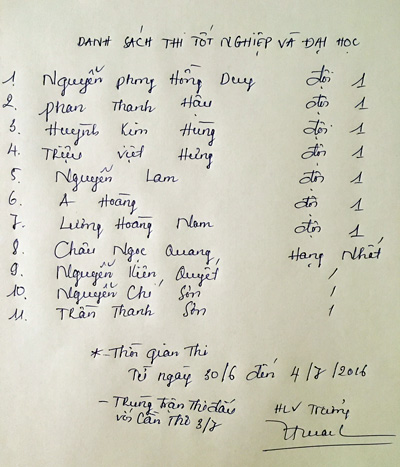 DANH SÁCH THI TỐT NGHIỆP VÀ ĐẠI HỌC
1 Nguyễn phong Hồng Duy đội 1
2. phan Thanh Hậu đội 1
3. Huỳnh Kim Hùng đội 1
4. Triệu Việt Hưng đội 1
5 Nguyễn Lam đội 1
6. A Hoàng đội 1
7. Lương Hoàng Nam đội 1
8. Châu Ngọc Quang Hạng Nhất
9. Nguyễn Kiên Quyết /
10. Nguyễn Chí Sơn /
11. Trần Thanh Sơn /
* - Thời gian Thi
Từ ngày 30/6 đến 4/7/2016
- Trùng trận Thi đấu
với Cần Thơ 3/7
HLV Trưởng